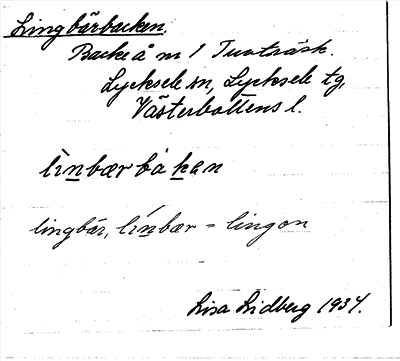 Lingbärbacken.
Backe å nr 1 Tuvträsk.
Lycksele sn, Lycksele tg,
Västerbottens l.
lìnbær bakan
lingbär, línbær = lingon
Lisa Lidberg 1934.